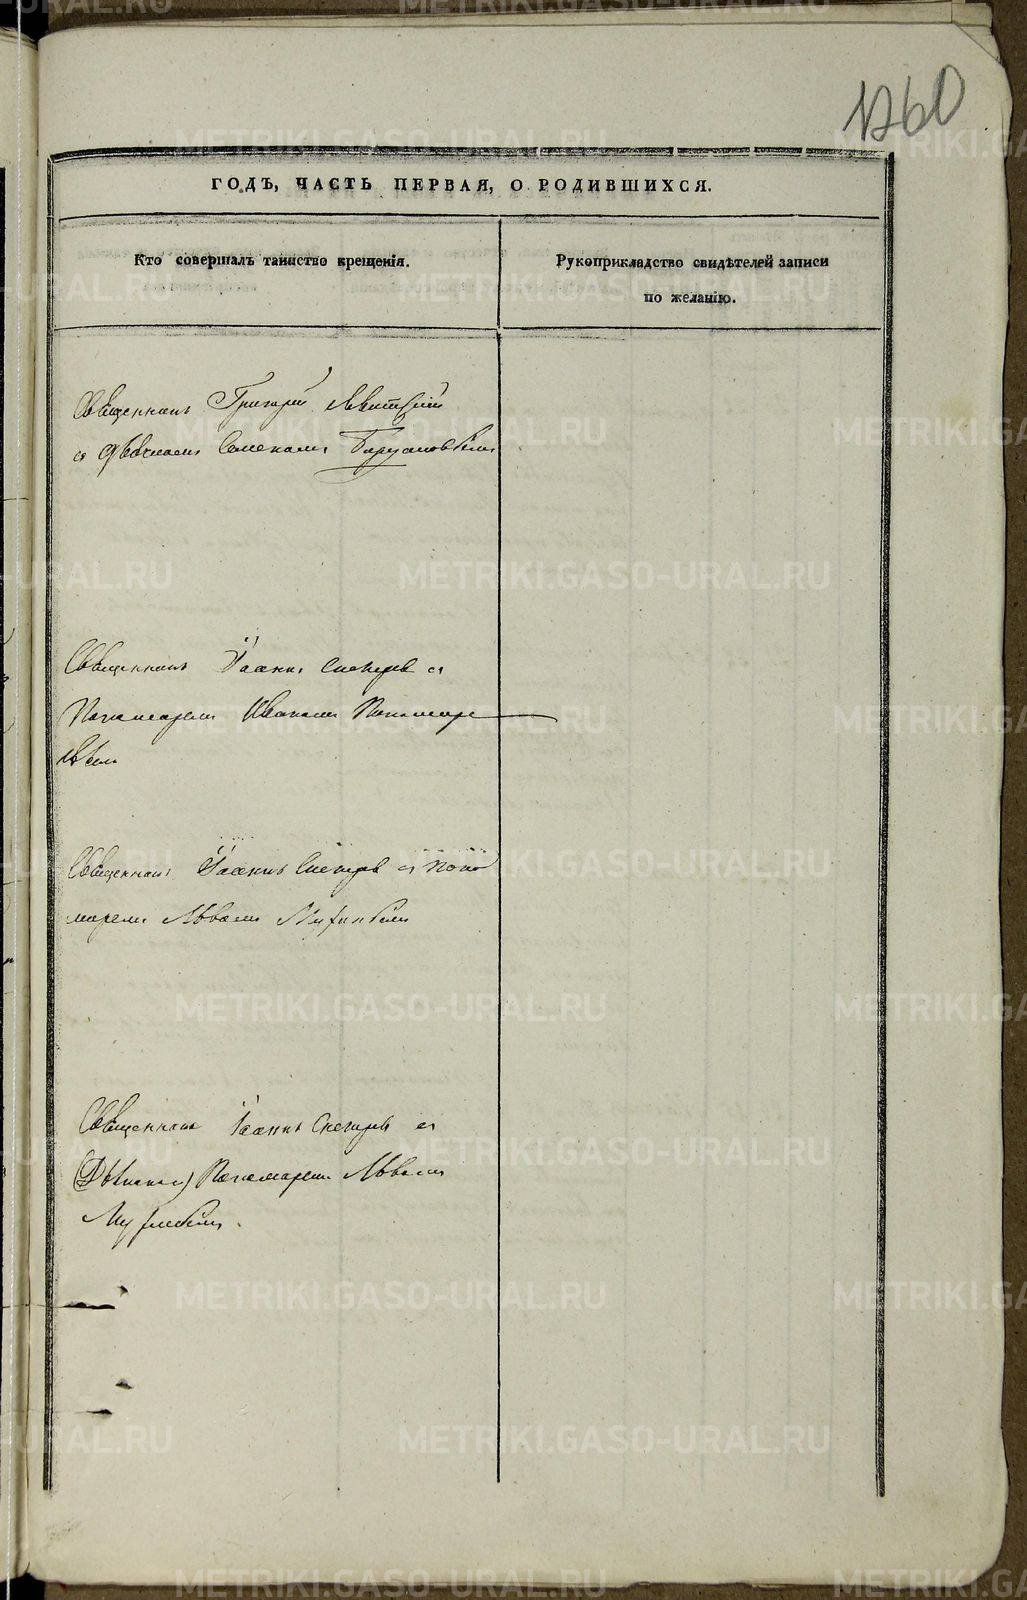 1260
ГОДЪ, ЧАСТЬ ПЕРВАЯ, О РОДИВШИХСЯ.
Кто совершалъ таинство крещенія.
Рукоприкладство свидѣтелей записи
по желанію.
Священникъ Григорій Левитскій
съ Дьячкомъ Симономъ
Священникъ Іоаннъ Снегирев съ
Пономаремъ Иваномъ Пономаре
вымъ
Священникъ Іоаннъ Снегирев съ Поно
марем Львомъ
Священникъ Іоаннъ Снегирев съ
(Дьячком) Пономарем Львомъ
METRIKI.GASO-URAL.RU